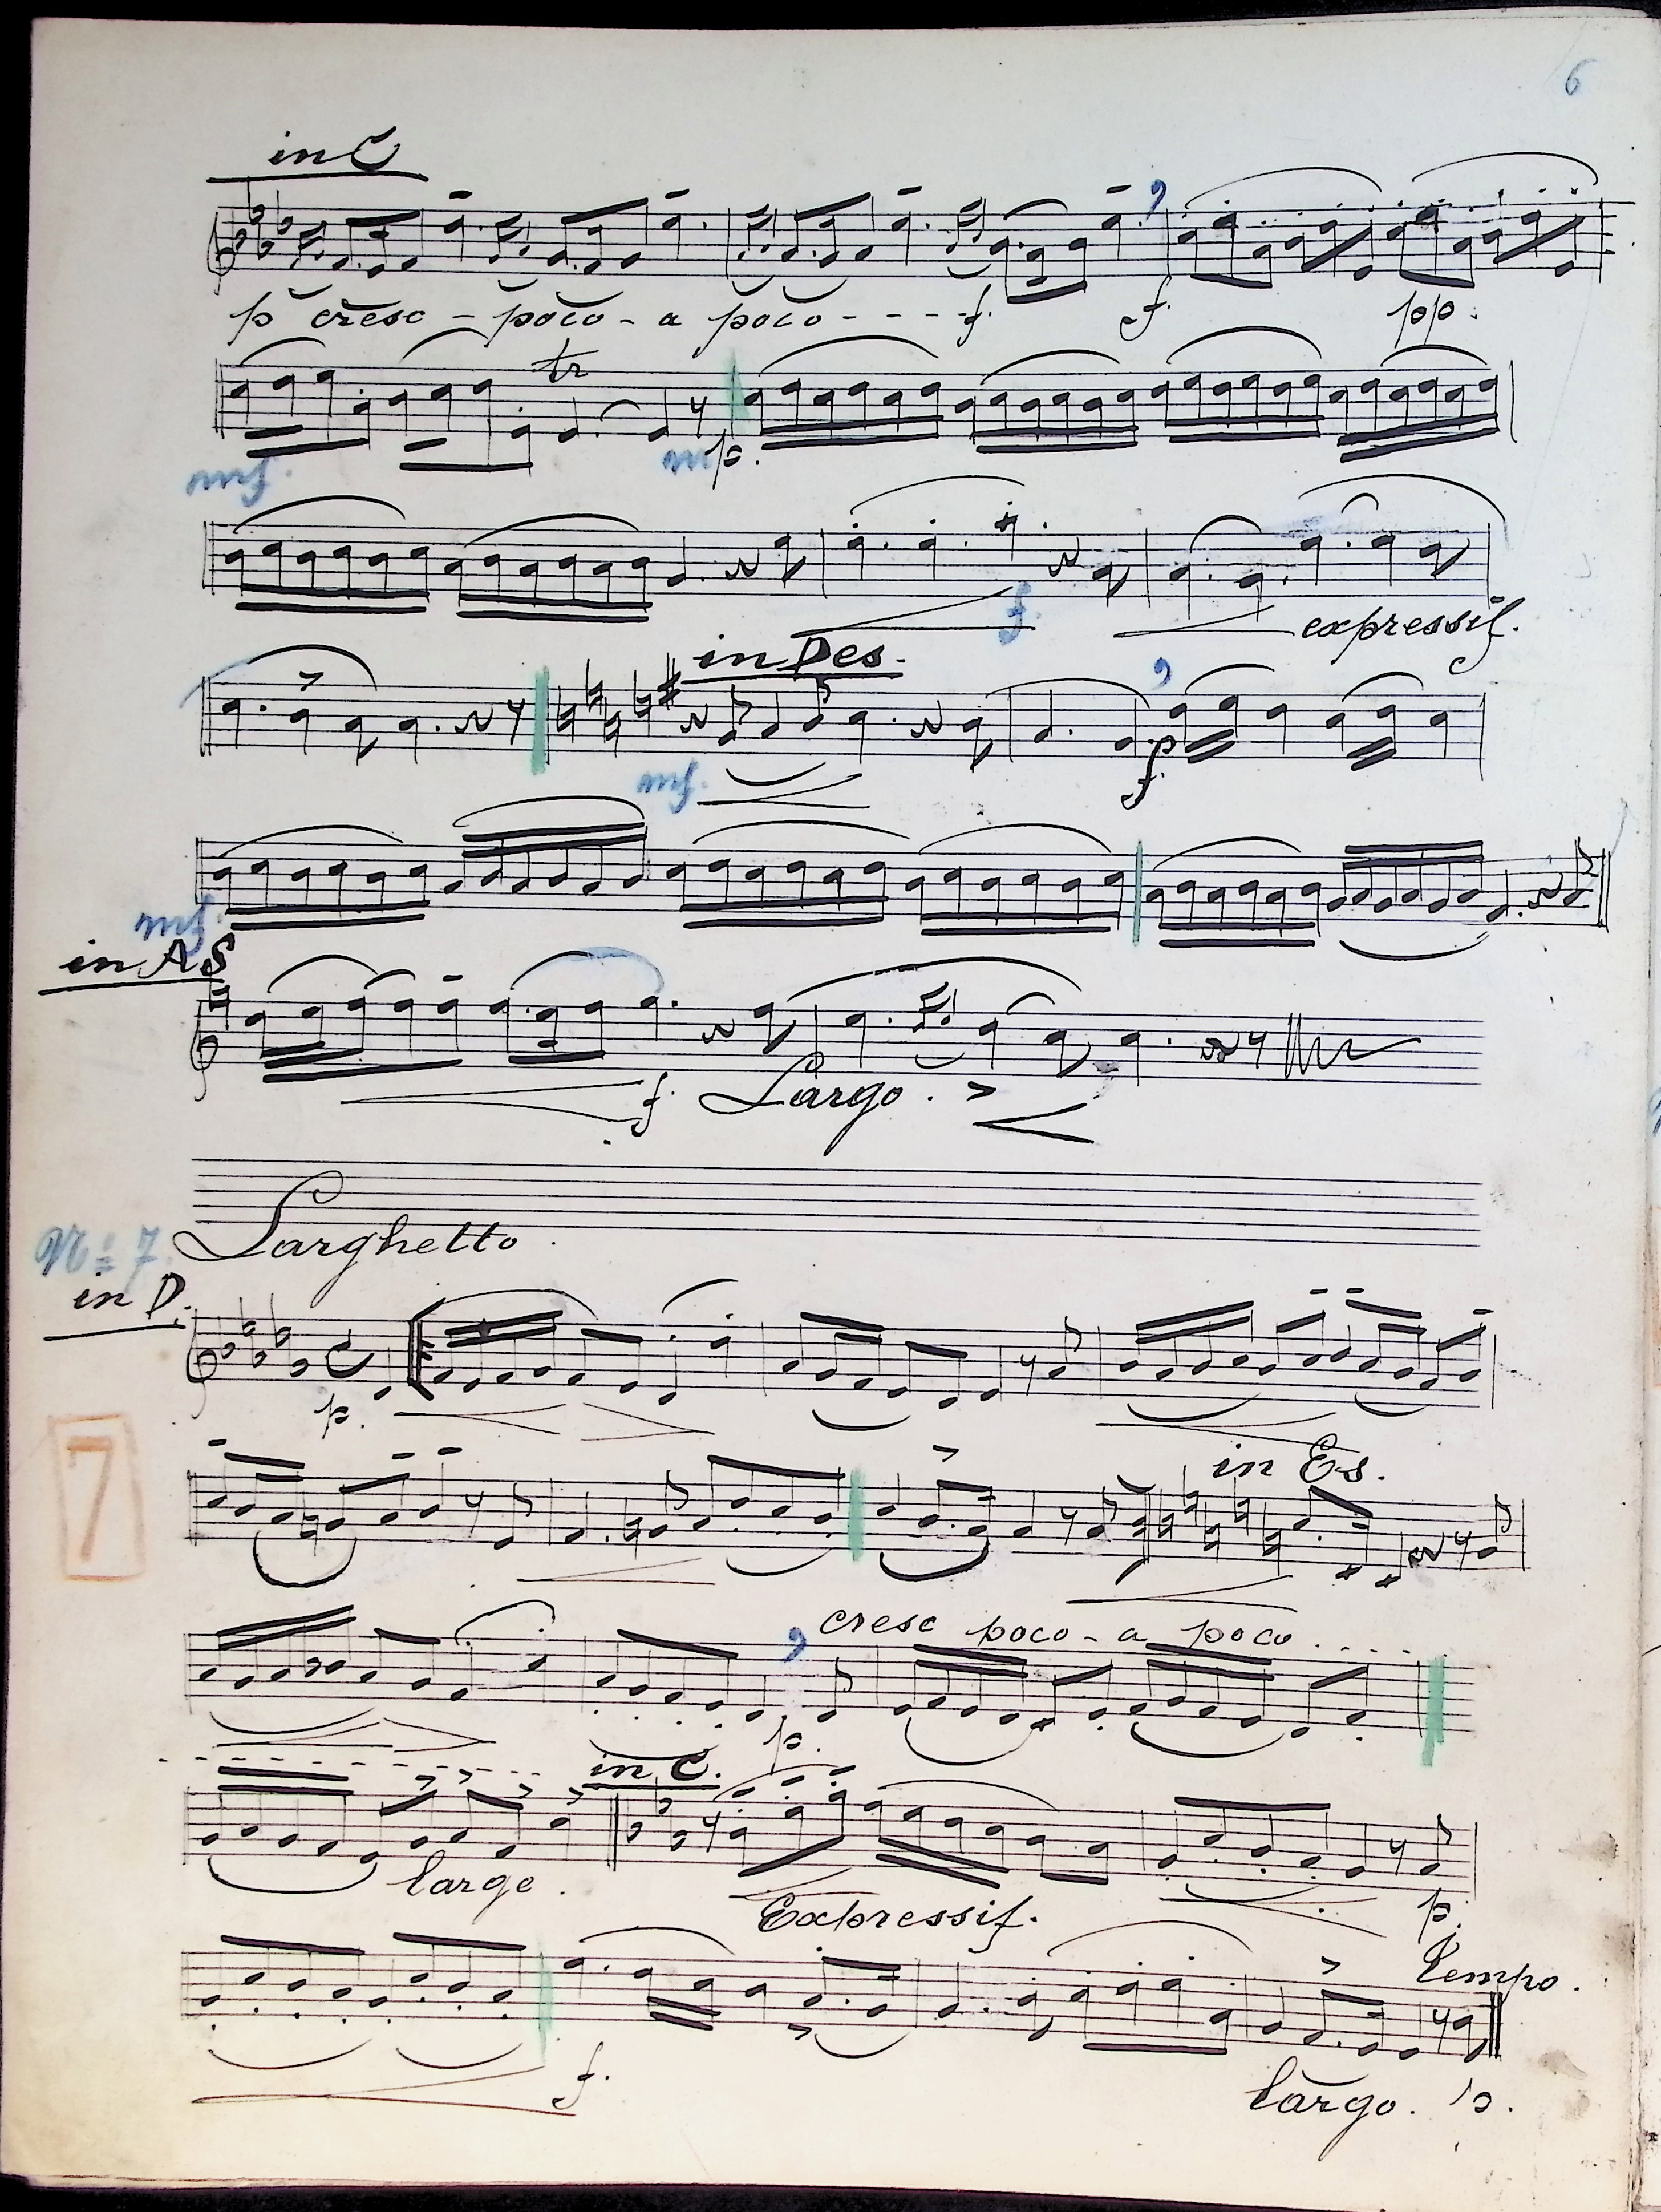 6
in C
p cresc - poco - a poco - - - - f. f. pp.
tr
mf. mp.
f. expressif.
in Des.
mf. f.
mf.
in AS
f. Largo.
N=7. Larghetto.
in D.
p.
7
in Es.
cresc poco - a poco . . . .
p.
in C.
large.
Expressif. p.
tempo.
f.
largo. p.